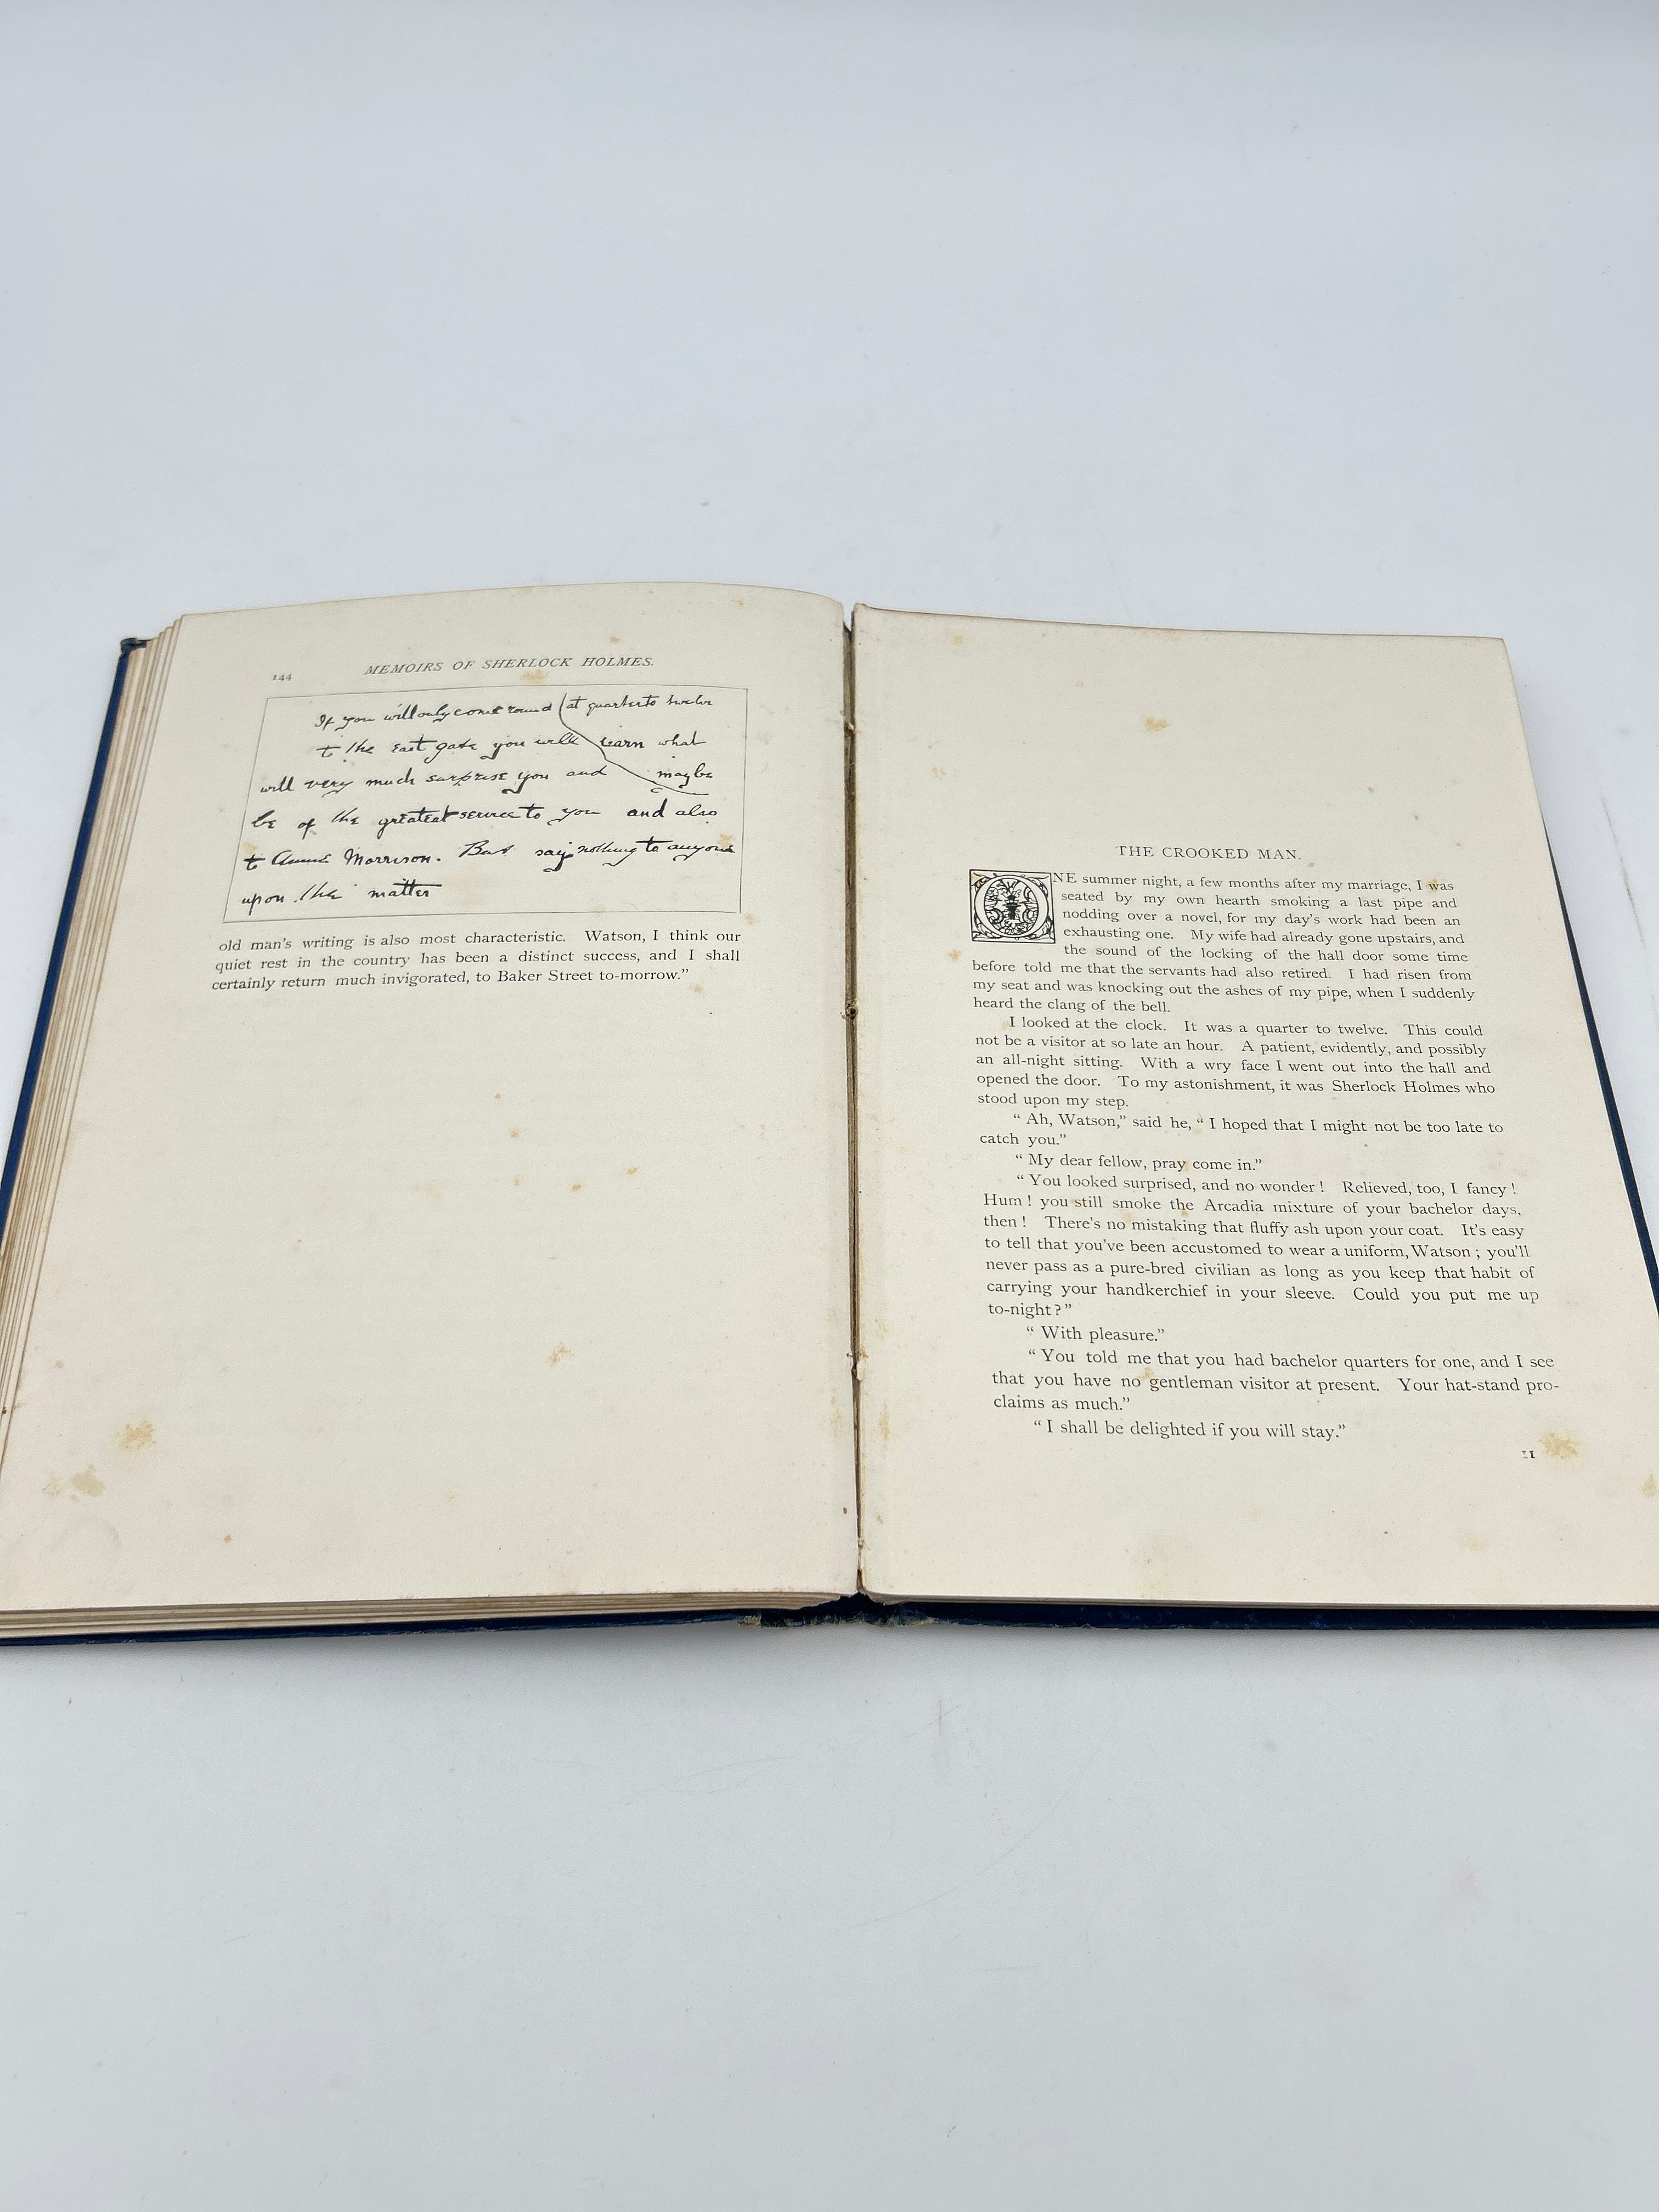 144
MEMOIRS OF SHERLOCK HOLMES.
If you will only come round at quarter to twelve
to the east gate you will learn what
will very much surprise you and maybe
be of the greatest service to you and also
to Annie Morrison. But say nothing to anyone
upon the matter
old man's writing is also most characteristic. Watson, I think our
quiet rest in the country has been a distinct success, and I shall
certainly return much invigorated, to Baker Street to-morrow.”
THE CROOKED MAN.
ONE summer night, a few months after my marriage, I was
seated by my own hearth smoking a last pipe and
nodding over a novel, for my day's work had been an
exhausting one. My wife had already gone upstairs, and
the sound of the locking of the hall door some time
before told me that the servants had also retired. I had risen from
my seat and was knocking out the ashes of my pipe, when I suddenly
heard the clang of the bell.
I looked at the clock. It was a quarter to twelve. This could
not be a visitor at so late an hour. A patient, evidently, and possibly
an all-night sitting. With a wry face I went out into the hall and
opened the door. To my astonishment, it was Sherlock Holmes who
stood upon my step.
“Ah, Watson,” said he, “I hoped that I might not be too late to
catch you.”
“My dear fellow, pray come in.”
“You looked surprised, and no wonder! Relieved, too, I fancy!
Hum! you still smoke the Arcadia mixture of your bachelor days,
then! There's no mistaking that fluffy ash upon your coat. It's easy
to tell that you've been accustomed to wear a uniform, Watson; you'll
never pass as a pure-bred civilian as long as you keep that habit of
carrying your handkerchief in your sleeve. Could you put me up
to-night?”
“With pleasure.”
“You told me that you had bachelor quarters for one, and I see
that you have no gentleman visitor at present. Your hat-stand pro-
claims as much.”
“I shall be delighted if you will stay.”
11